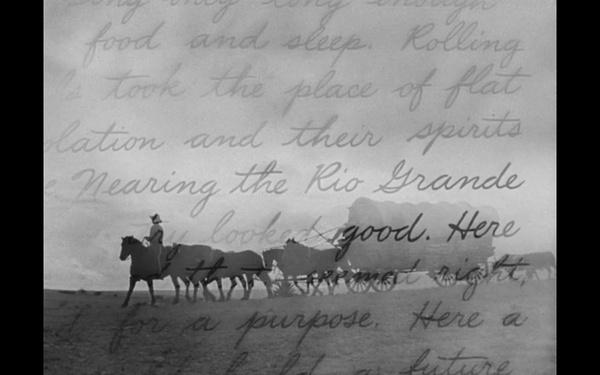 long enough
food and sleep. Rolling
took the place of flat
and their spirits
Nearing the Rio Grande
looked good. Here
that seemed right,
for a purpose. Here a
build a future